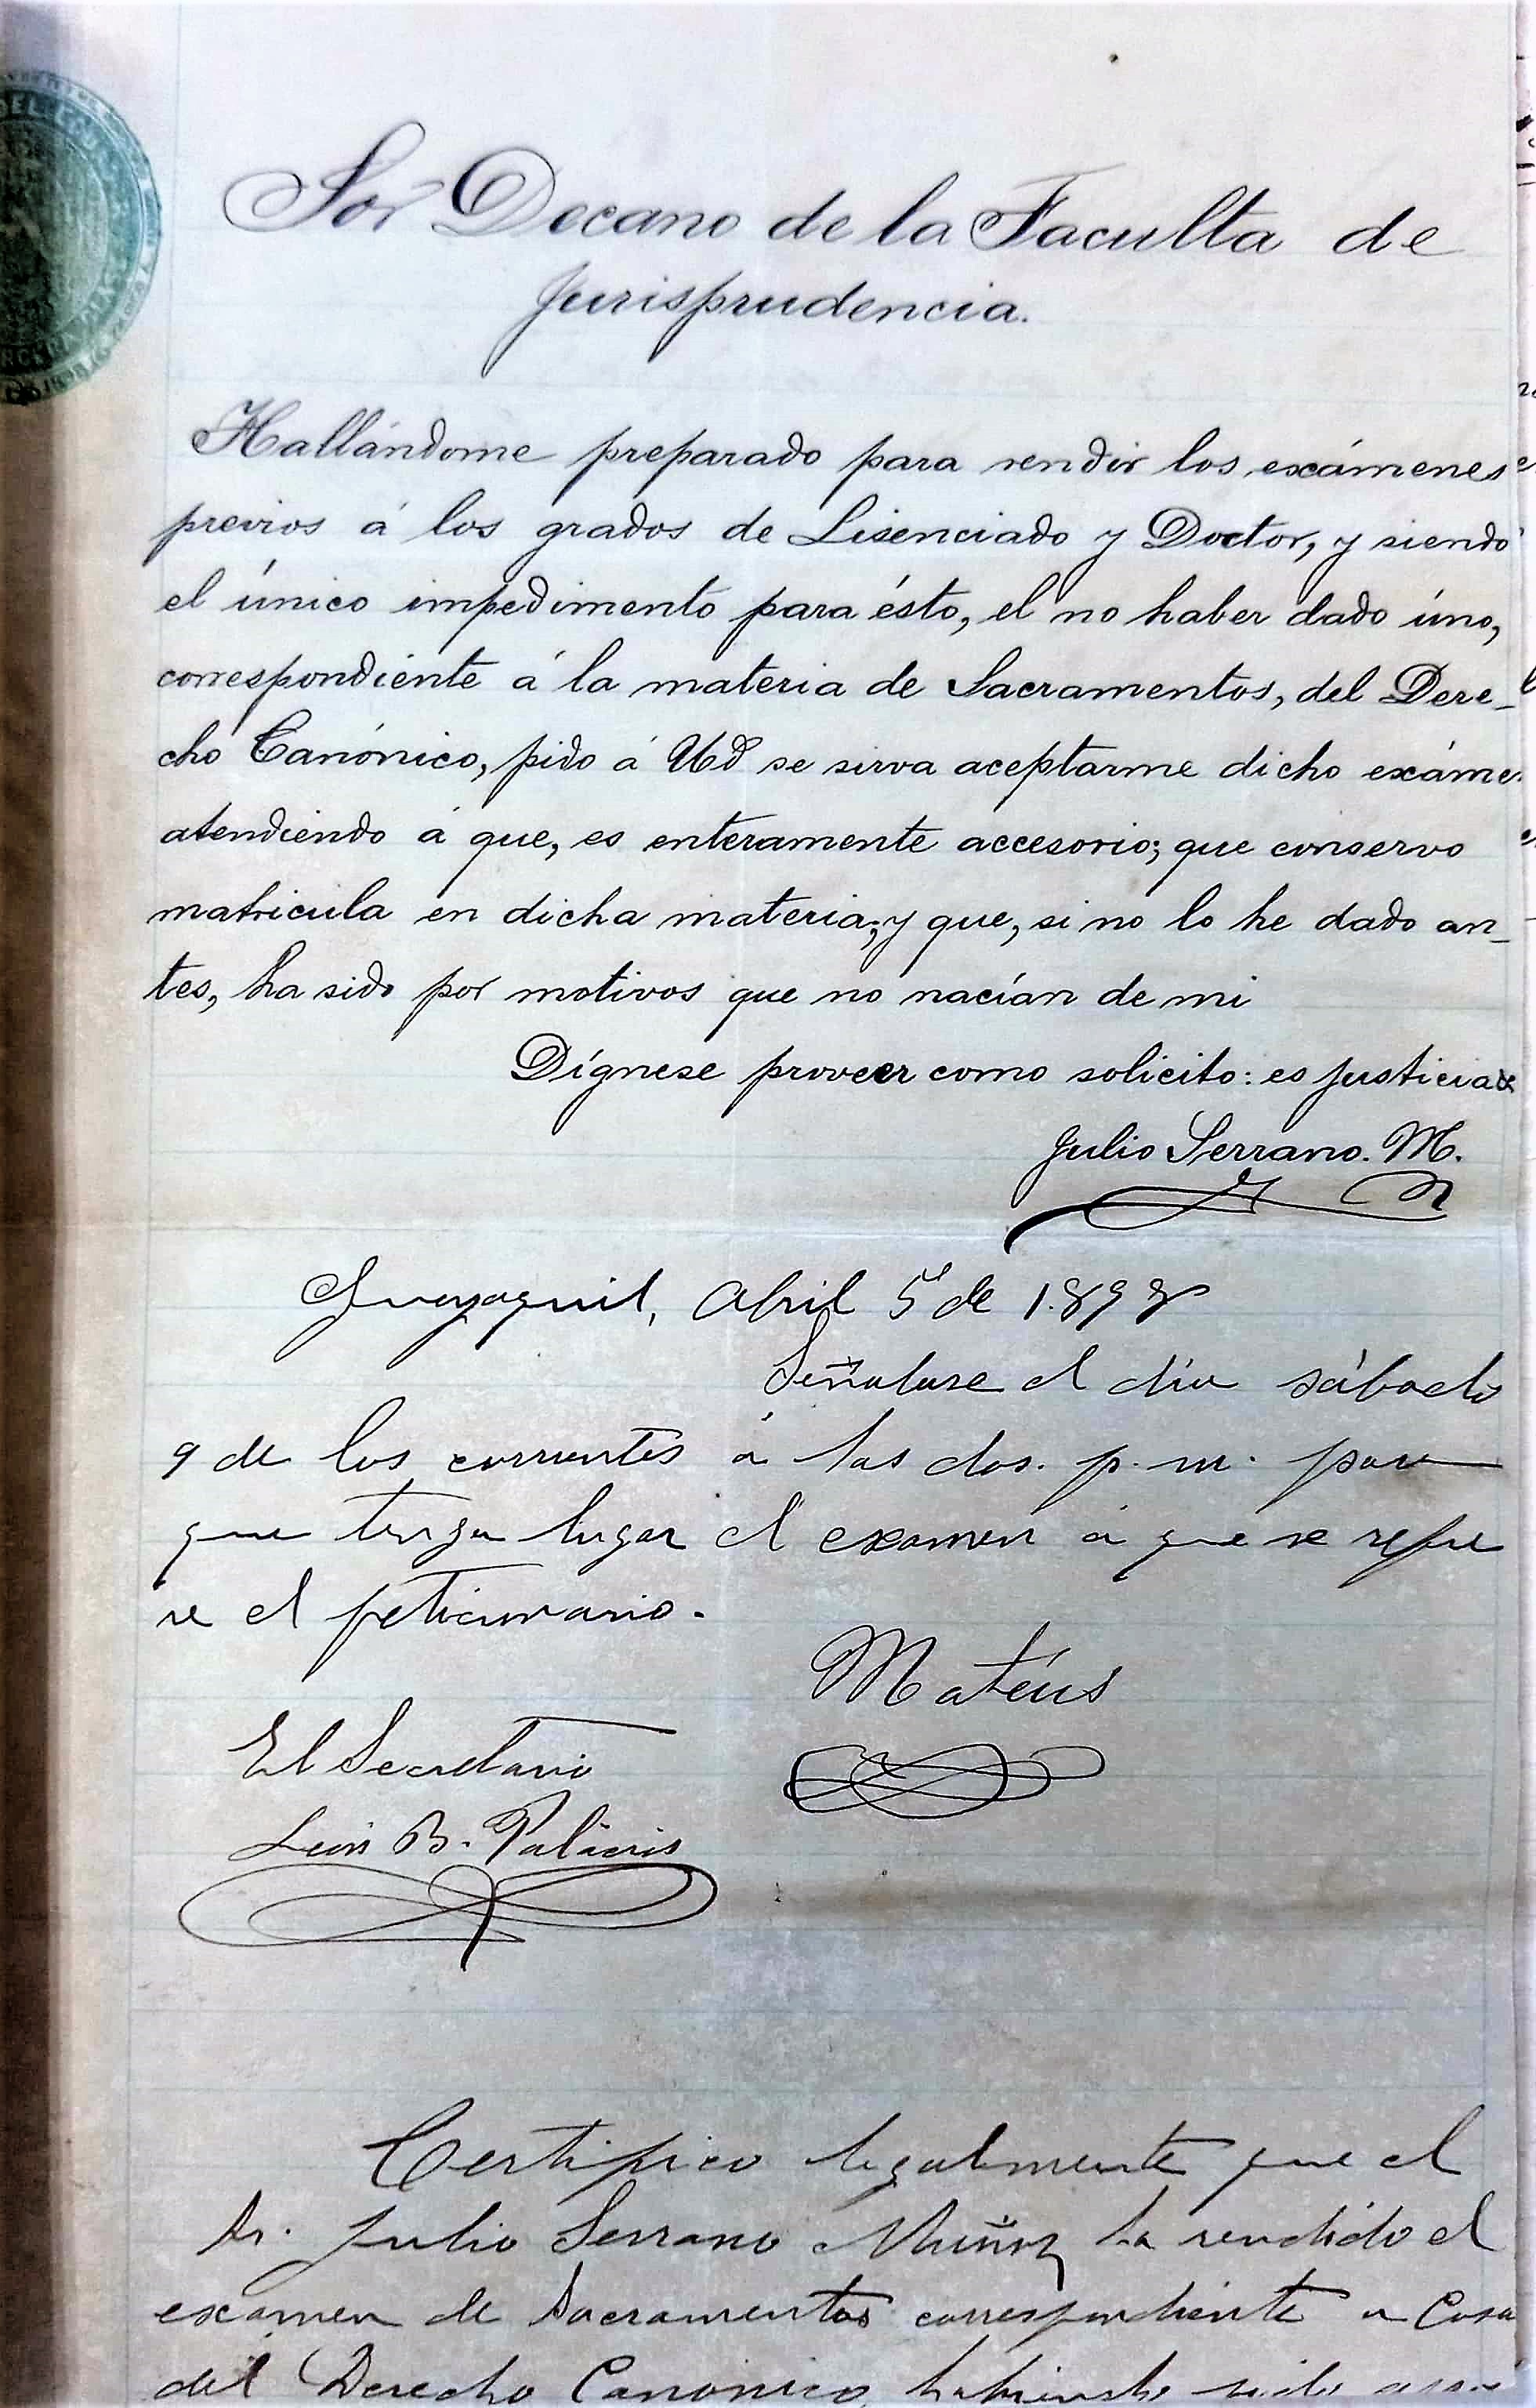 DEL ECUA
1898
Sor Decano de la Faculta de
Jurisprudencia.
Hallándome preparado para rendir los exámenes
previos á los grados de Lisenciado y Doctor, y siendo
el único impedimento para ésto, el no haber dado úno,
correspondiente á la materia de Sacramentos, del Dere-
cho Canónico, pido á Ud se sirva aceptarme dicho exáme
atendiendo á que, es enteramente accesorio; que conservo
matricula en dicha materia; y que, si no lo he dado an-
tes, ha sido por motivos que no nacían de mi
Dígnese proveer como solicito: es justicia &
Julio Serrano. M.
Guayaquil, Abril 5 de 1.898
Señalase el dia sábado
9 de los corrientes á las dos. p. m. para
que tenga lugar el examen á que se refie
re el peticionario.
Matéus
El Secretario
Luis B. Palacios
Certifico legalmente que el
Sr. Julio Serrano Muñoz ha rendido el
examen de Sacramentos correspondiente a Cosa
del Derecho Canonico habiendo sido